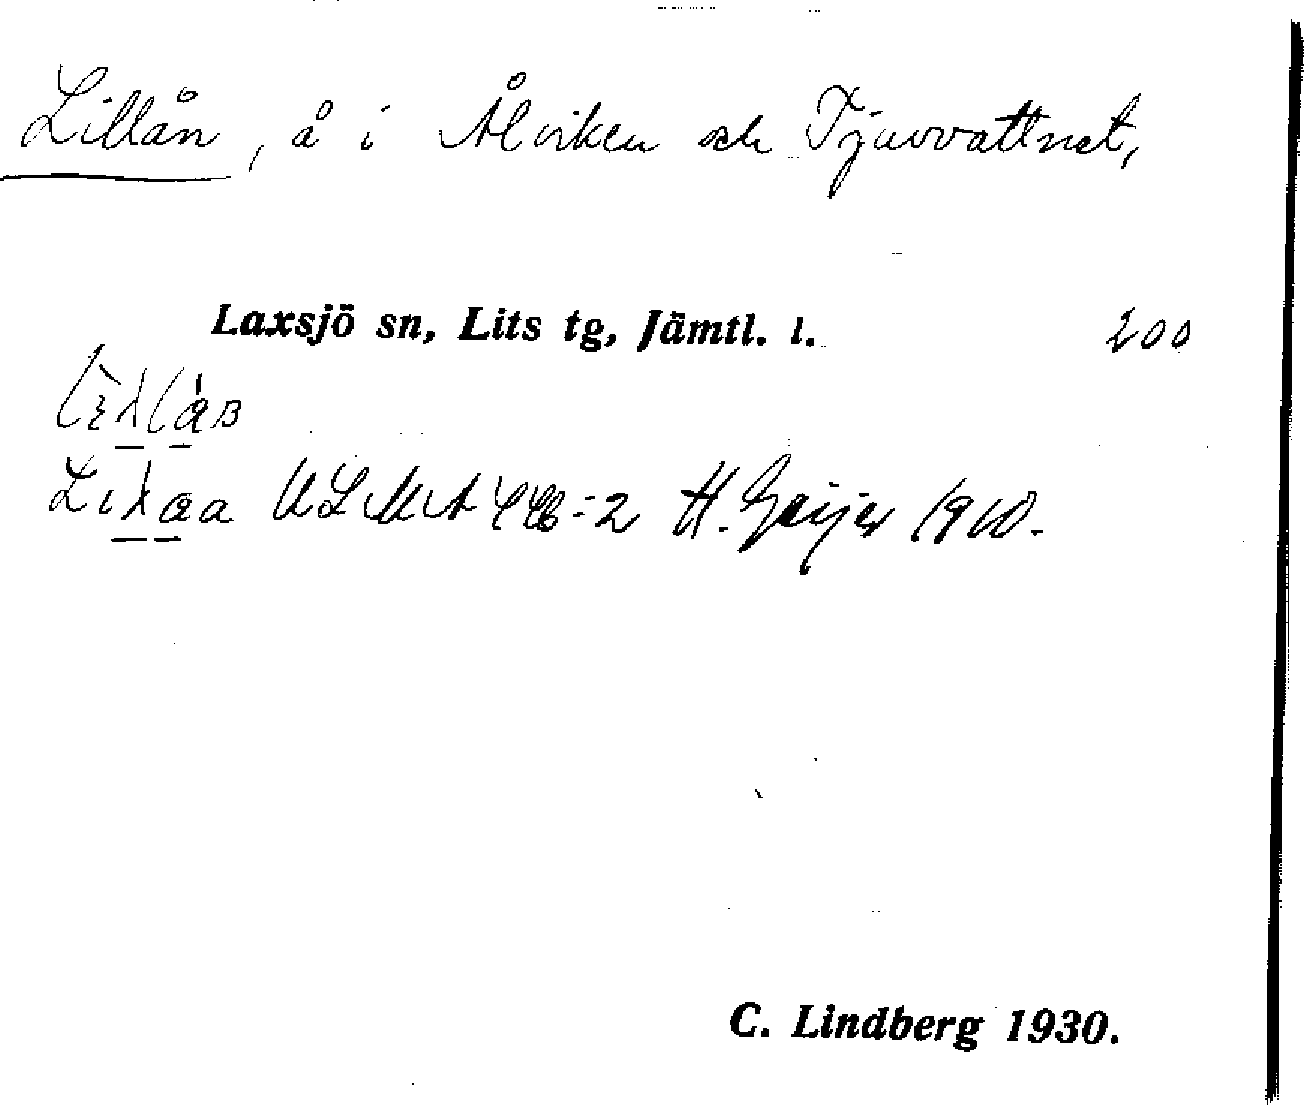 Lillån, å i Ålviken och Tjuvvattnet,
Laxsjö sn, Lits tg, Jämtl. l. 200
ULMA 446:2 H. Geijer 1910.
C. Lindberg 1930.